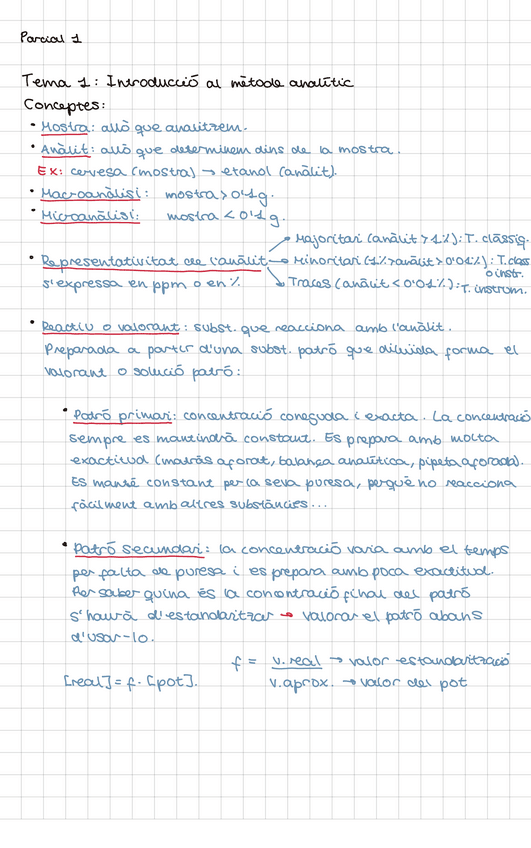 Parcial 1
Tema 1: Introducció al mètode analític
Conceptes:
• Mostra: allò que analitzem.
• Anàlit: allò que determinem dins de la mostra.
EX: cervesa (mostra) → etanol (anàlit).
• Macroanàlisi: mostra > 0'1 g.
• Microanàlisi: mostra < 0'1 g.
→ Majoritari (anàlit > 1%): T. clàssiq.
• Representativitat de l'anàlit → Minoritari (1% > anàlit > 0'01%): T. class
o instr.
s'expressa en ppm o en % → Traces (anàlit < 0'01%): T. instrum.
• Reactiu o valorant: subst. que reacciona amb l'anàlit.
Preparada a partir d'una subst. patró que diluïda forma el
valorant o solució patró:
• Patró primari: concentració coneguda i exacta. La concentració
sempre es mantindrà constant. Es prepara amb molta
exactitud (matràs aforat, balança analítica, pipeta aforada).
Es manté constant per la seva puresa, perquè no reacciona
fàcilment amb altres substàncies...
• Patró secundari: la concentració varia amb el temps
per falta de puresa i es prepara amb poca exactitud.
Per saber quina és la concentració final del patró
s'haurà d'estandaritzar → valorar el patró abans
d'usar-lo.
f = v. real → valor estandarització
[real] = f · [pot]. v. aprox. → valor del pot